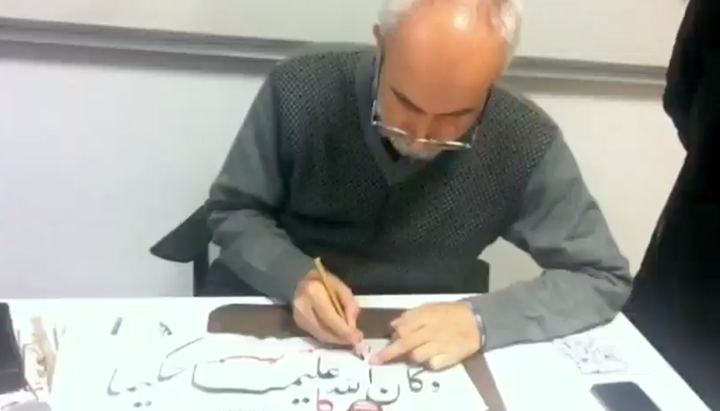 وكان الله عليما حكيما
كا